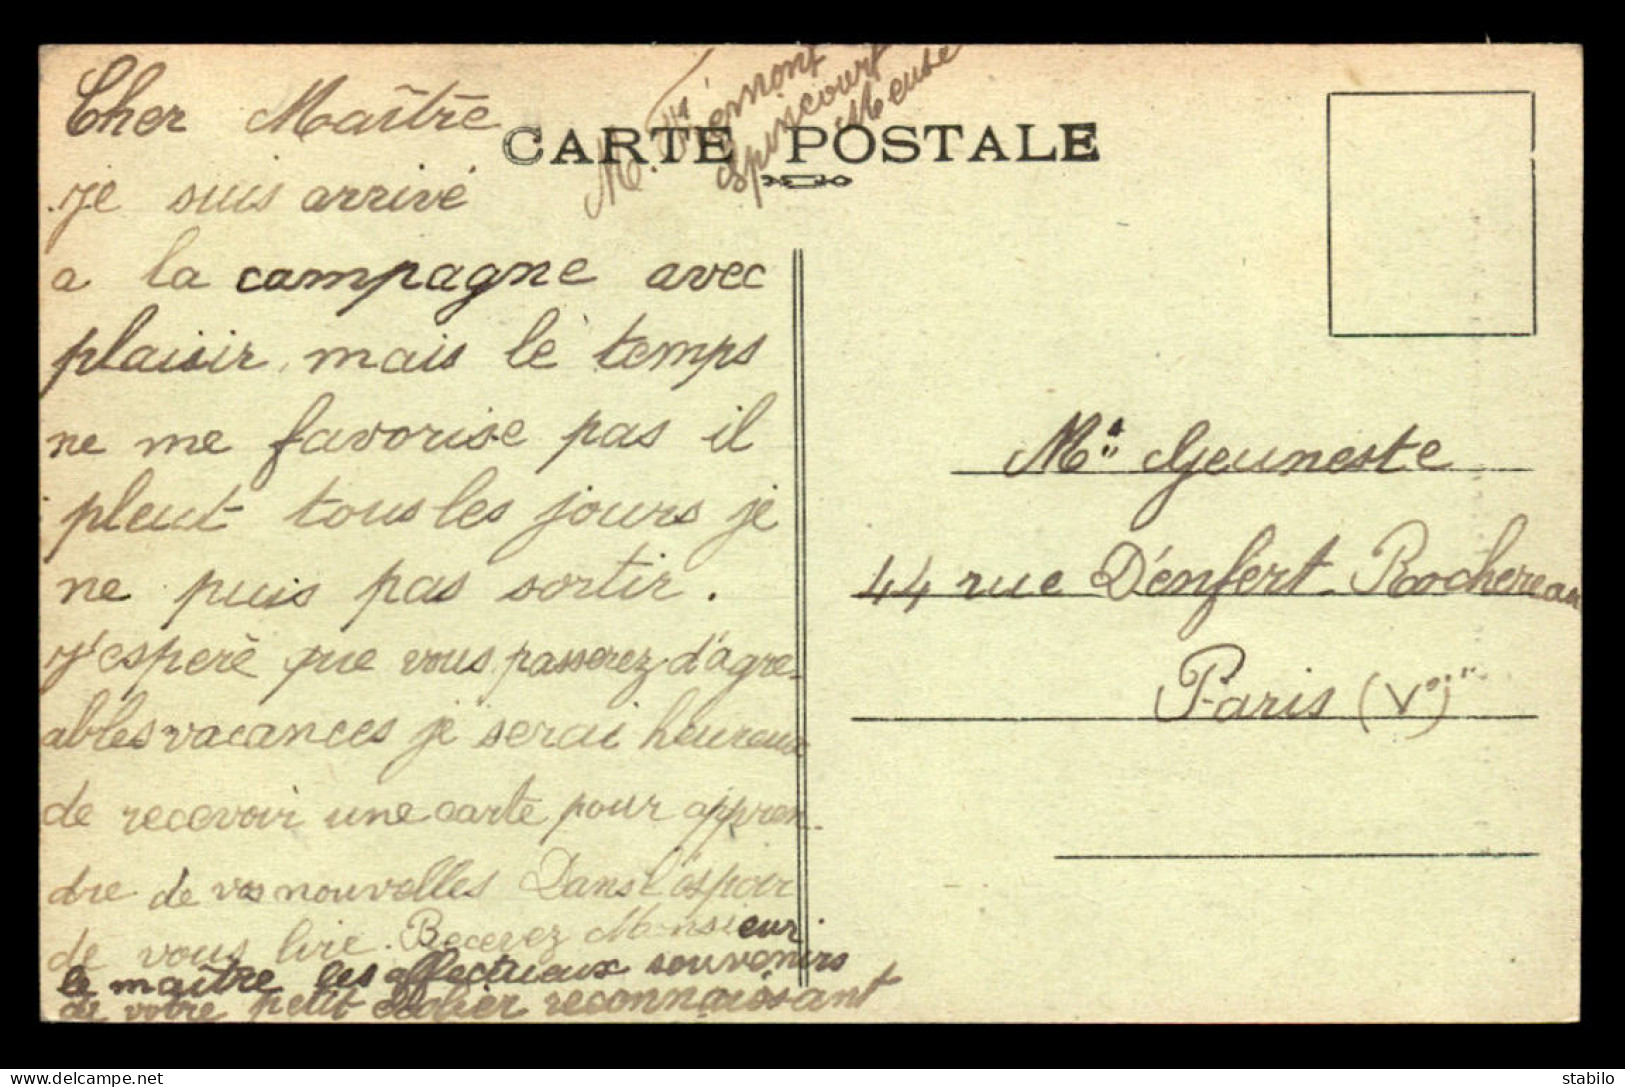 Cher Maître
je suis arrivé
a la campagne avec
plaisir, mais le temps
ne me favorise pas il
pleut tous les jours je
ne puis pas sortir.
J'esperè que vous passerez d'agre-
ables vacances je serai heureux
de recevoir une carte pour appren-
dre de vos nouvelles Dans l'éspoir
de vous lire. Recevez Monsieur
le maître les affectueux souvenirs
de votre petit reconnaissant
M.
Spincourt
Meuse
CARTE POSTALE
Mr Geuneste
44 rue D'enfert-Rochereau
Paris (V")
delcampe.net
stabilo